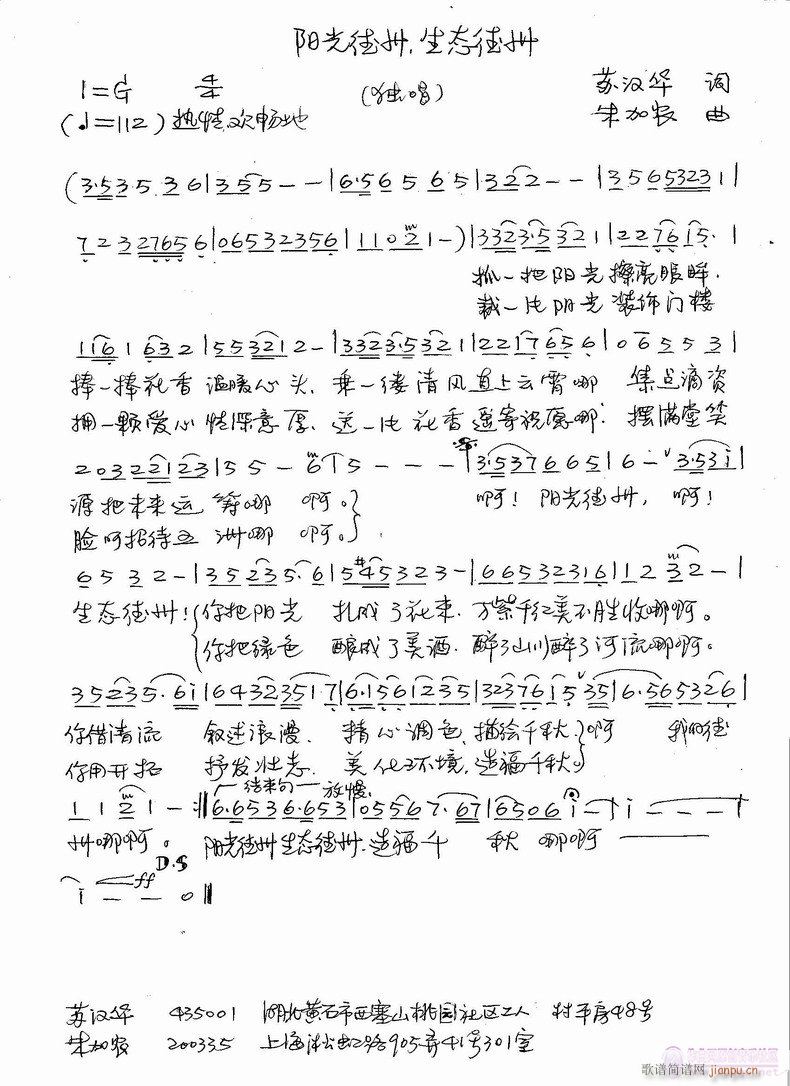 阳光徒州,生态徒州
1=G 4/4 (独唱) 苏汉华 词
(♩=112) 热情欢畅地 朱加农 曲
(3·535 36|355--|6·56565|322--|356532 31|
7232765 6|065323 56|1102 1-)|3323·5321|22761 5·|
抓一把阳光擦亮眼眸,
裁一片阳光装饰门楼
1161 632|553212-|3323·5321|2217656|06553|
捧一捧花香温暖心头,乘一缕清风直上云霄哪 集点滴资
拥一颗爱心情深意厚,送一片花香遥寄祝愿哪· 摆满堂笑
20322123|55-6|5---|3·537665|6-3·53i|
源把未来运筹哪 啊。 啊! 阳光徒州, 啊!
脸呵招待五洲哪 啊。
6532-|35235·6|5#45323-|665323 16|1232-|
生态徒州! 你把阳光 扎成了花束,万紫千红美不胜收哪啊。
你把绿色 酿成了美酒.醉了山川醉了河流哪啊。
35235·6i|6432351·7|6·1561235|323761535|6·565326|
你借清流 叙述浪漫、精心调色,描绘千秋,啊 我的徒
你用开拓 抒发壮志、美化环境,造福千秋。
结束句 放慢
1121-|6·6536·653|055 67·67|6506i-|i---|
州哪啊。 阳光徒州生态徒州,造福千 秋 哪啊
D.S
ff
i--0‖
苏汉华 435001 湖北黄石市西塞山桃园社区工人村平房48号
朱加农 200335 上海淞虹路905弄41号301室
歌谱简谱网 jianpu.cn